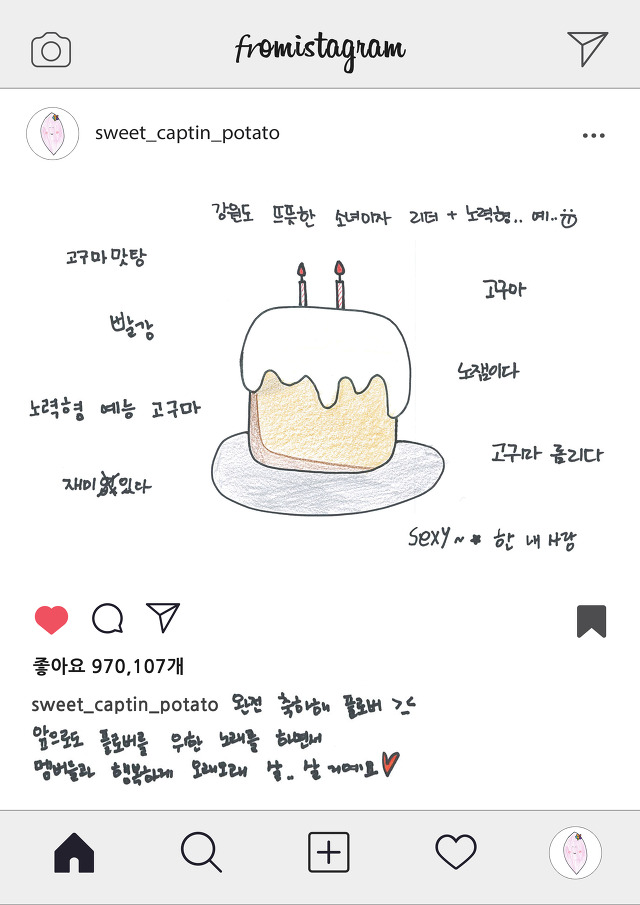 fromistagram
sweet_captin_potato
강원도 뜨뜻한 소녀이자 리더 + 노력형.. 예..
고구마 맛탕
고구마
빨강
노잼이다
노력형 예능 고구마
고구마 롬리다
재미있다
sexy~ 한 내 사랑
좋아요 970,107개
sweet_captin_potato 완전 축하해 플로버 >_<
앞으로도 플로버를 위한 노래를 하면서
멤버들과 행복하게 오래오래 살.. 살 거예요